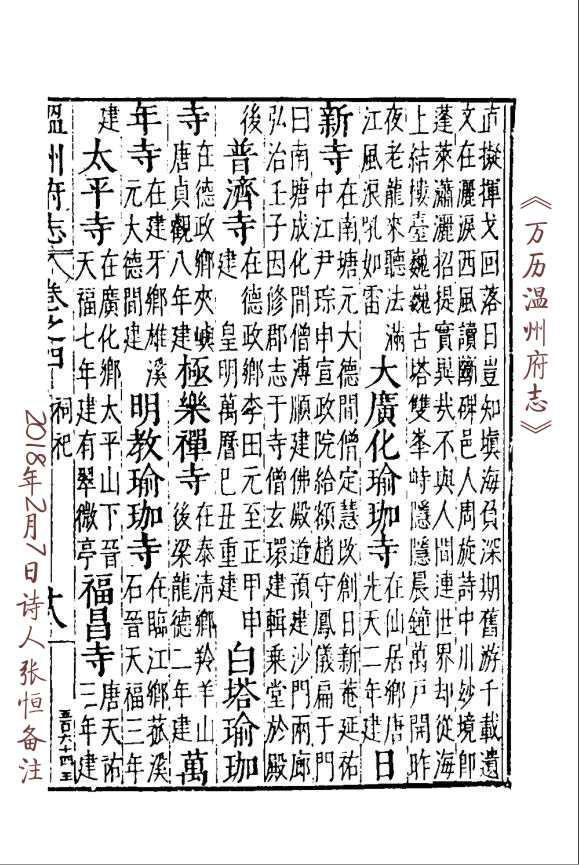 《万历温州府志》
直擬揮戈回落日豈知塡海負深期舊游千載遺
文在灑淚西風讀斷碑邑人周旋詩中川紗境即
蓬萊瀟灑招提實與哉不與人間連世界却從海
上結樓臺巍巍古塔雙峯峙隱隱晨鐘萬戶開昨
夜老龍來聽法滿江風浪吼如雷 大廣化瑜珈寺 在仙居鄉唐先天二年建 日
新寺 在南塘元大德間僧定慧改創日新菴延祐中江尹琮申宣政院給額趙守鳳儀扁于門
曰南塘成化間僧溥順建佛殿道預建沙門兩廊
弘治壬子因修郡志于寺僧玄環建輯乘堂於殿
後 普濟寺 在德政鄉李田元至正甲申建 皇明萬曆己丑重建 白塔瑜珈
寺 在德政鄉夾嶼唐貞觀八年建 極樂禪寺 在泰清鄉羚羊山後梁龍德二年建 萬
年寺 在建牙鄉雄溪元大德間建 明教瑜珈寺 在臨江鄉菰溪石晉天福三年
建 太平寺 在廣化鄉太平山下晉天福七年建有翠微亭 福昌寺 唐天祐三年建
溫州府志 卷之四 祠祀 五百六十四 王
2018年2月7日诗人张恒备注